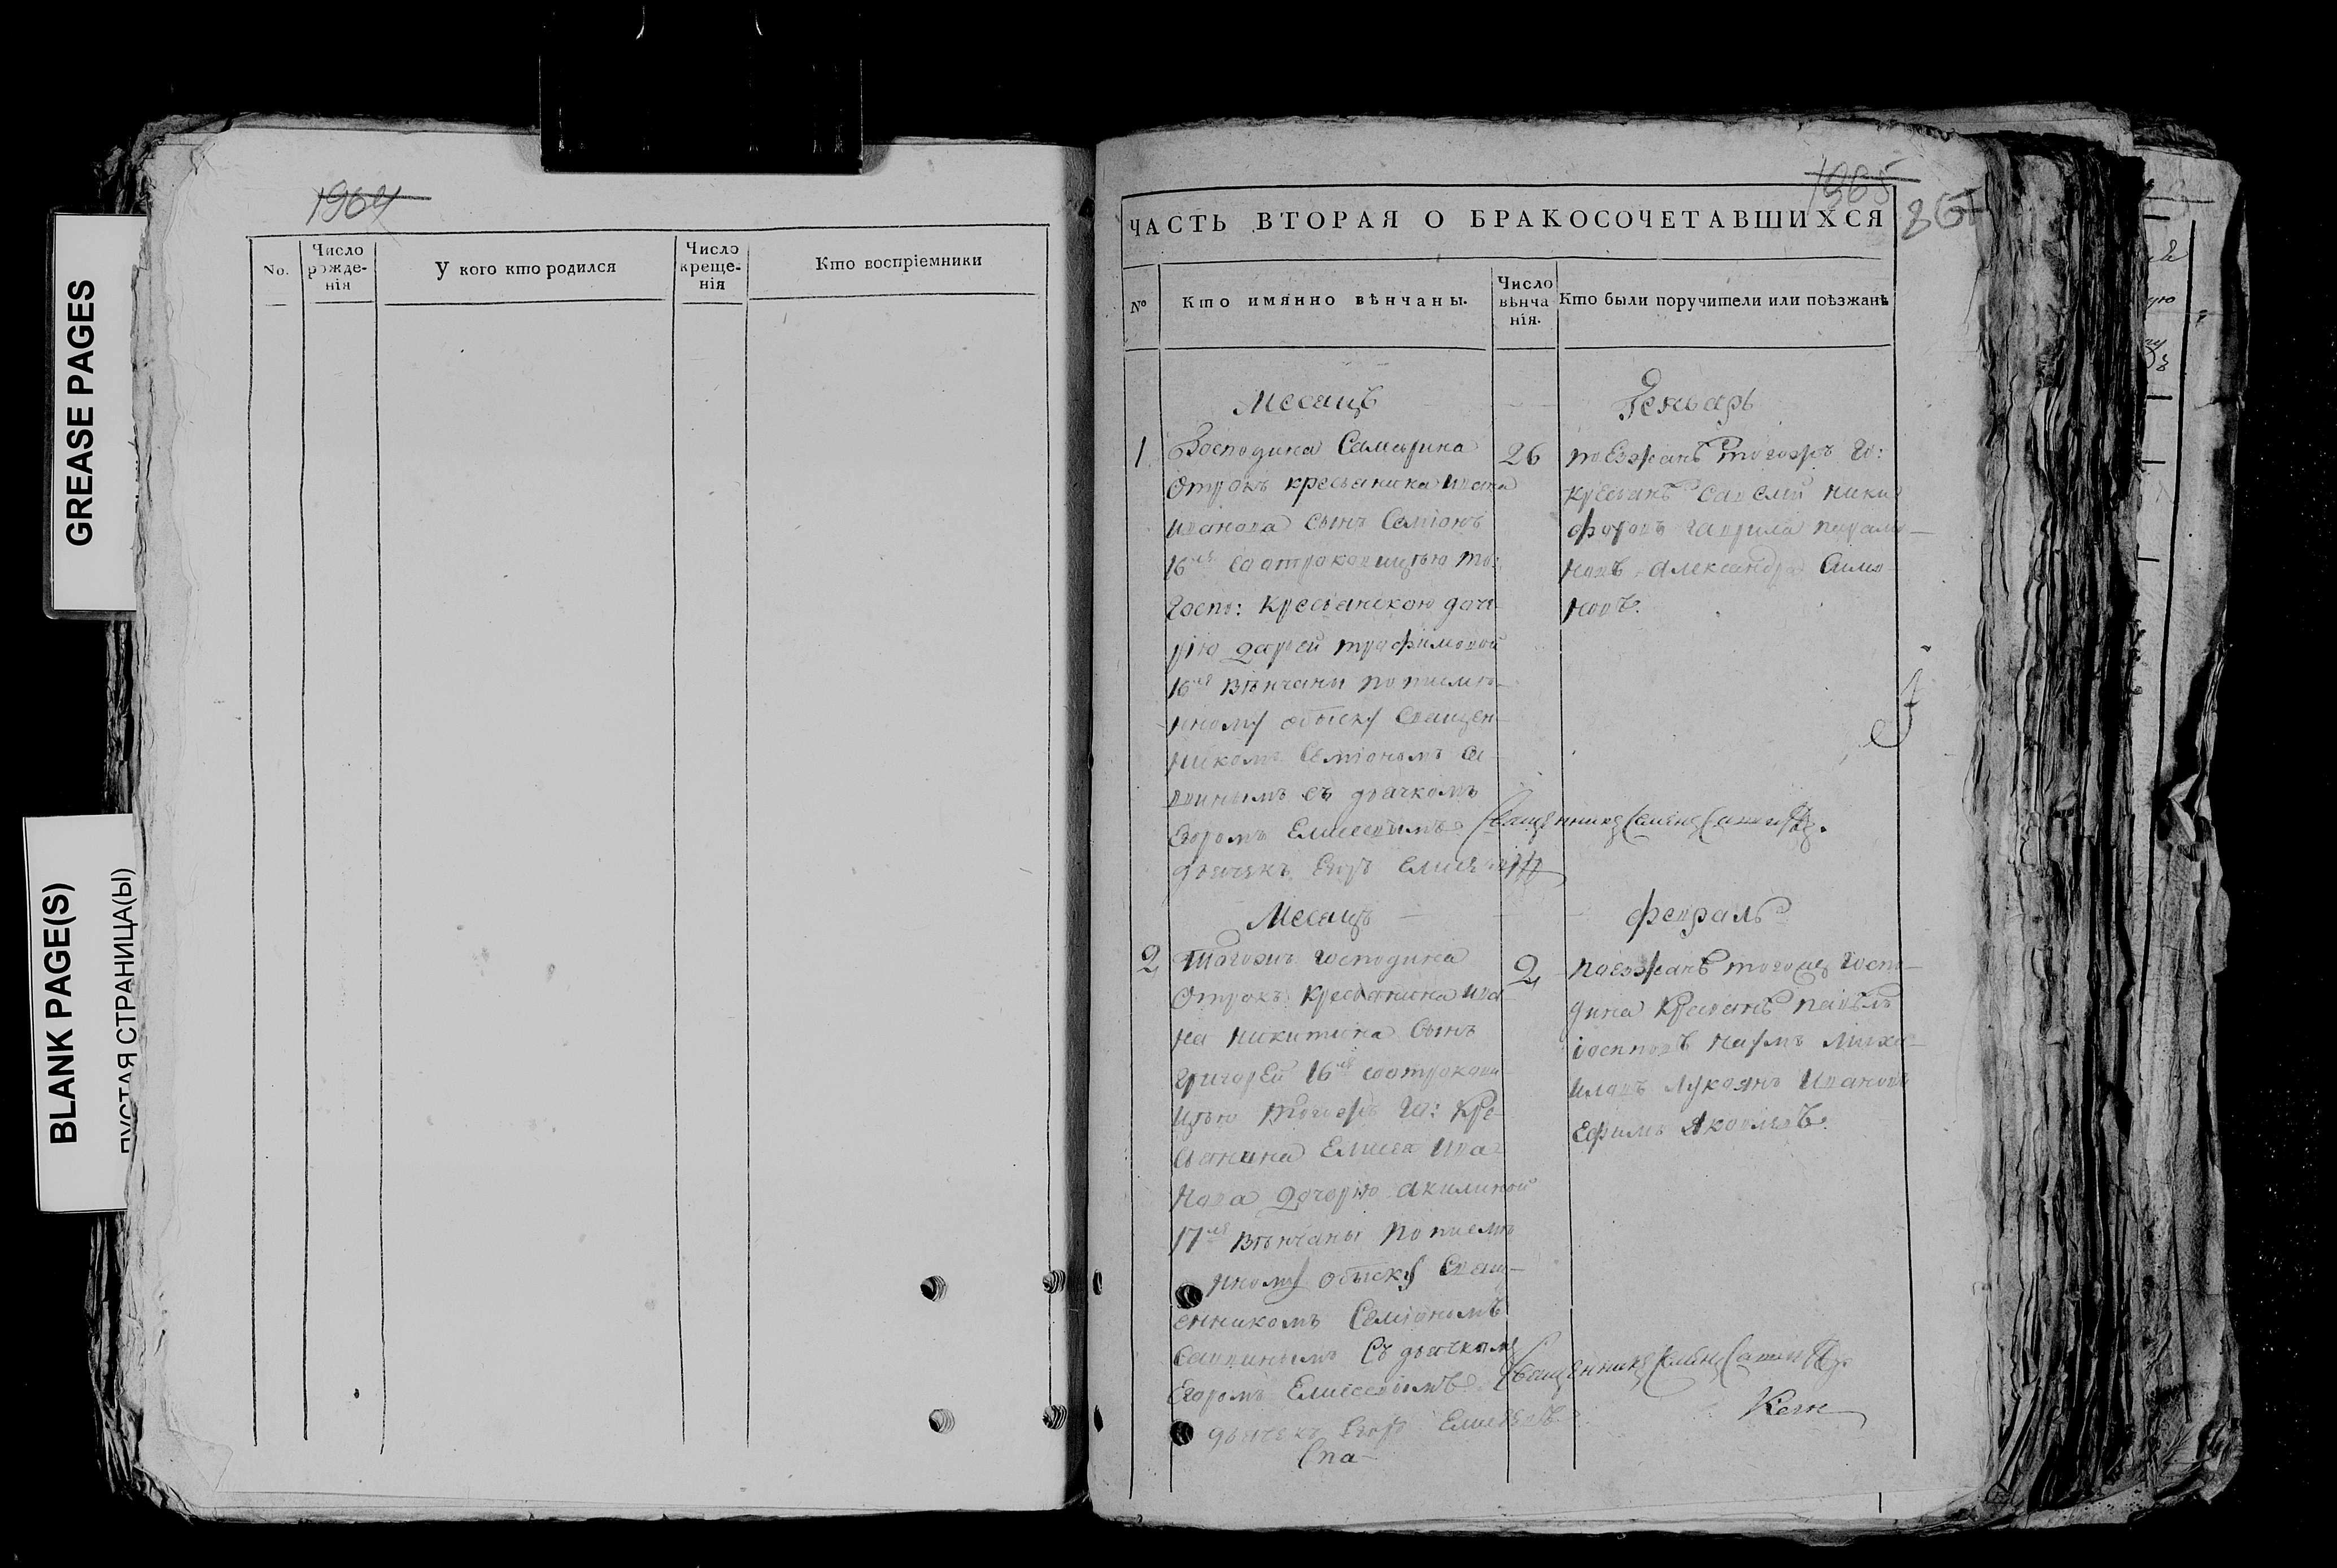 GREASE PAGES
BLANK PAGE(S)
ПУСТАЯ СТРАНИЦА(Ы)
1964
No.
Число рожде-нія
У кого кто родился
Число креще-нія
Кто воспріемники
1965
ЧАСТЬ ВТОРАЯ О БРАКОСОЧЕТАВШИХСЯ
№
Кто имянно вѣнчаны.
Число вѣнча нія.
Кто были поручители или поѣзжанѣ
Месяцъ
Генварь
1
Господина Самарина
Отрокъ кресьянина Ивана
Иванова Сынъ Семіонъ
16 Соотроковицъю то:
Госпо: Кресьянскою доче
рію Дарьей трофимовой
16 Вѣнчаны по писмѣ
нному обыску Священ
никомъ Семіономъ Са
винымъ съ дьячкомъ
Егоромъ Елисеевымъ
дьячекъ Егоръ
26
поезжанѣ тогожъ Го:
Кресьянѣ Савелій Ники
форовъ гаврила парамо
новъ Александра Симо
новъ.
Священникъ Семенъ
Месяцъ
февраль
2
Тогожъ господина
Отрокъ кресьянина Ива
на Никитина Сынъ
Григорей 16 соотрокови
цъю тогожъ Го: Кре
сьянина Елисея Ива
нова Дочерию Акилиной
17 Вѣнчаны по писмѣ
нному обыску Свящ
енникомъ Семіономъ
Савинымъ Съ дьячкомъ
Егоромъ Елисеевымъ
дьячекъ Егоръ Елисеевъ
Спа-
2
Поезжанѣ тогожъ Госпо
дина Кресьянѣ павѣлъ
іосиповъ Наумъ Миха
иловъ Лукоянъ Ивановъ
Ефимъ Яковлевъ.
Священникъ Семенъ